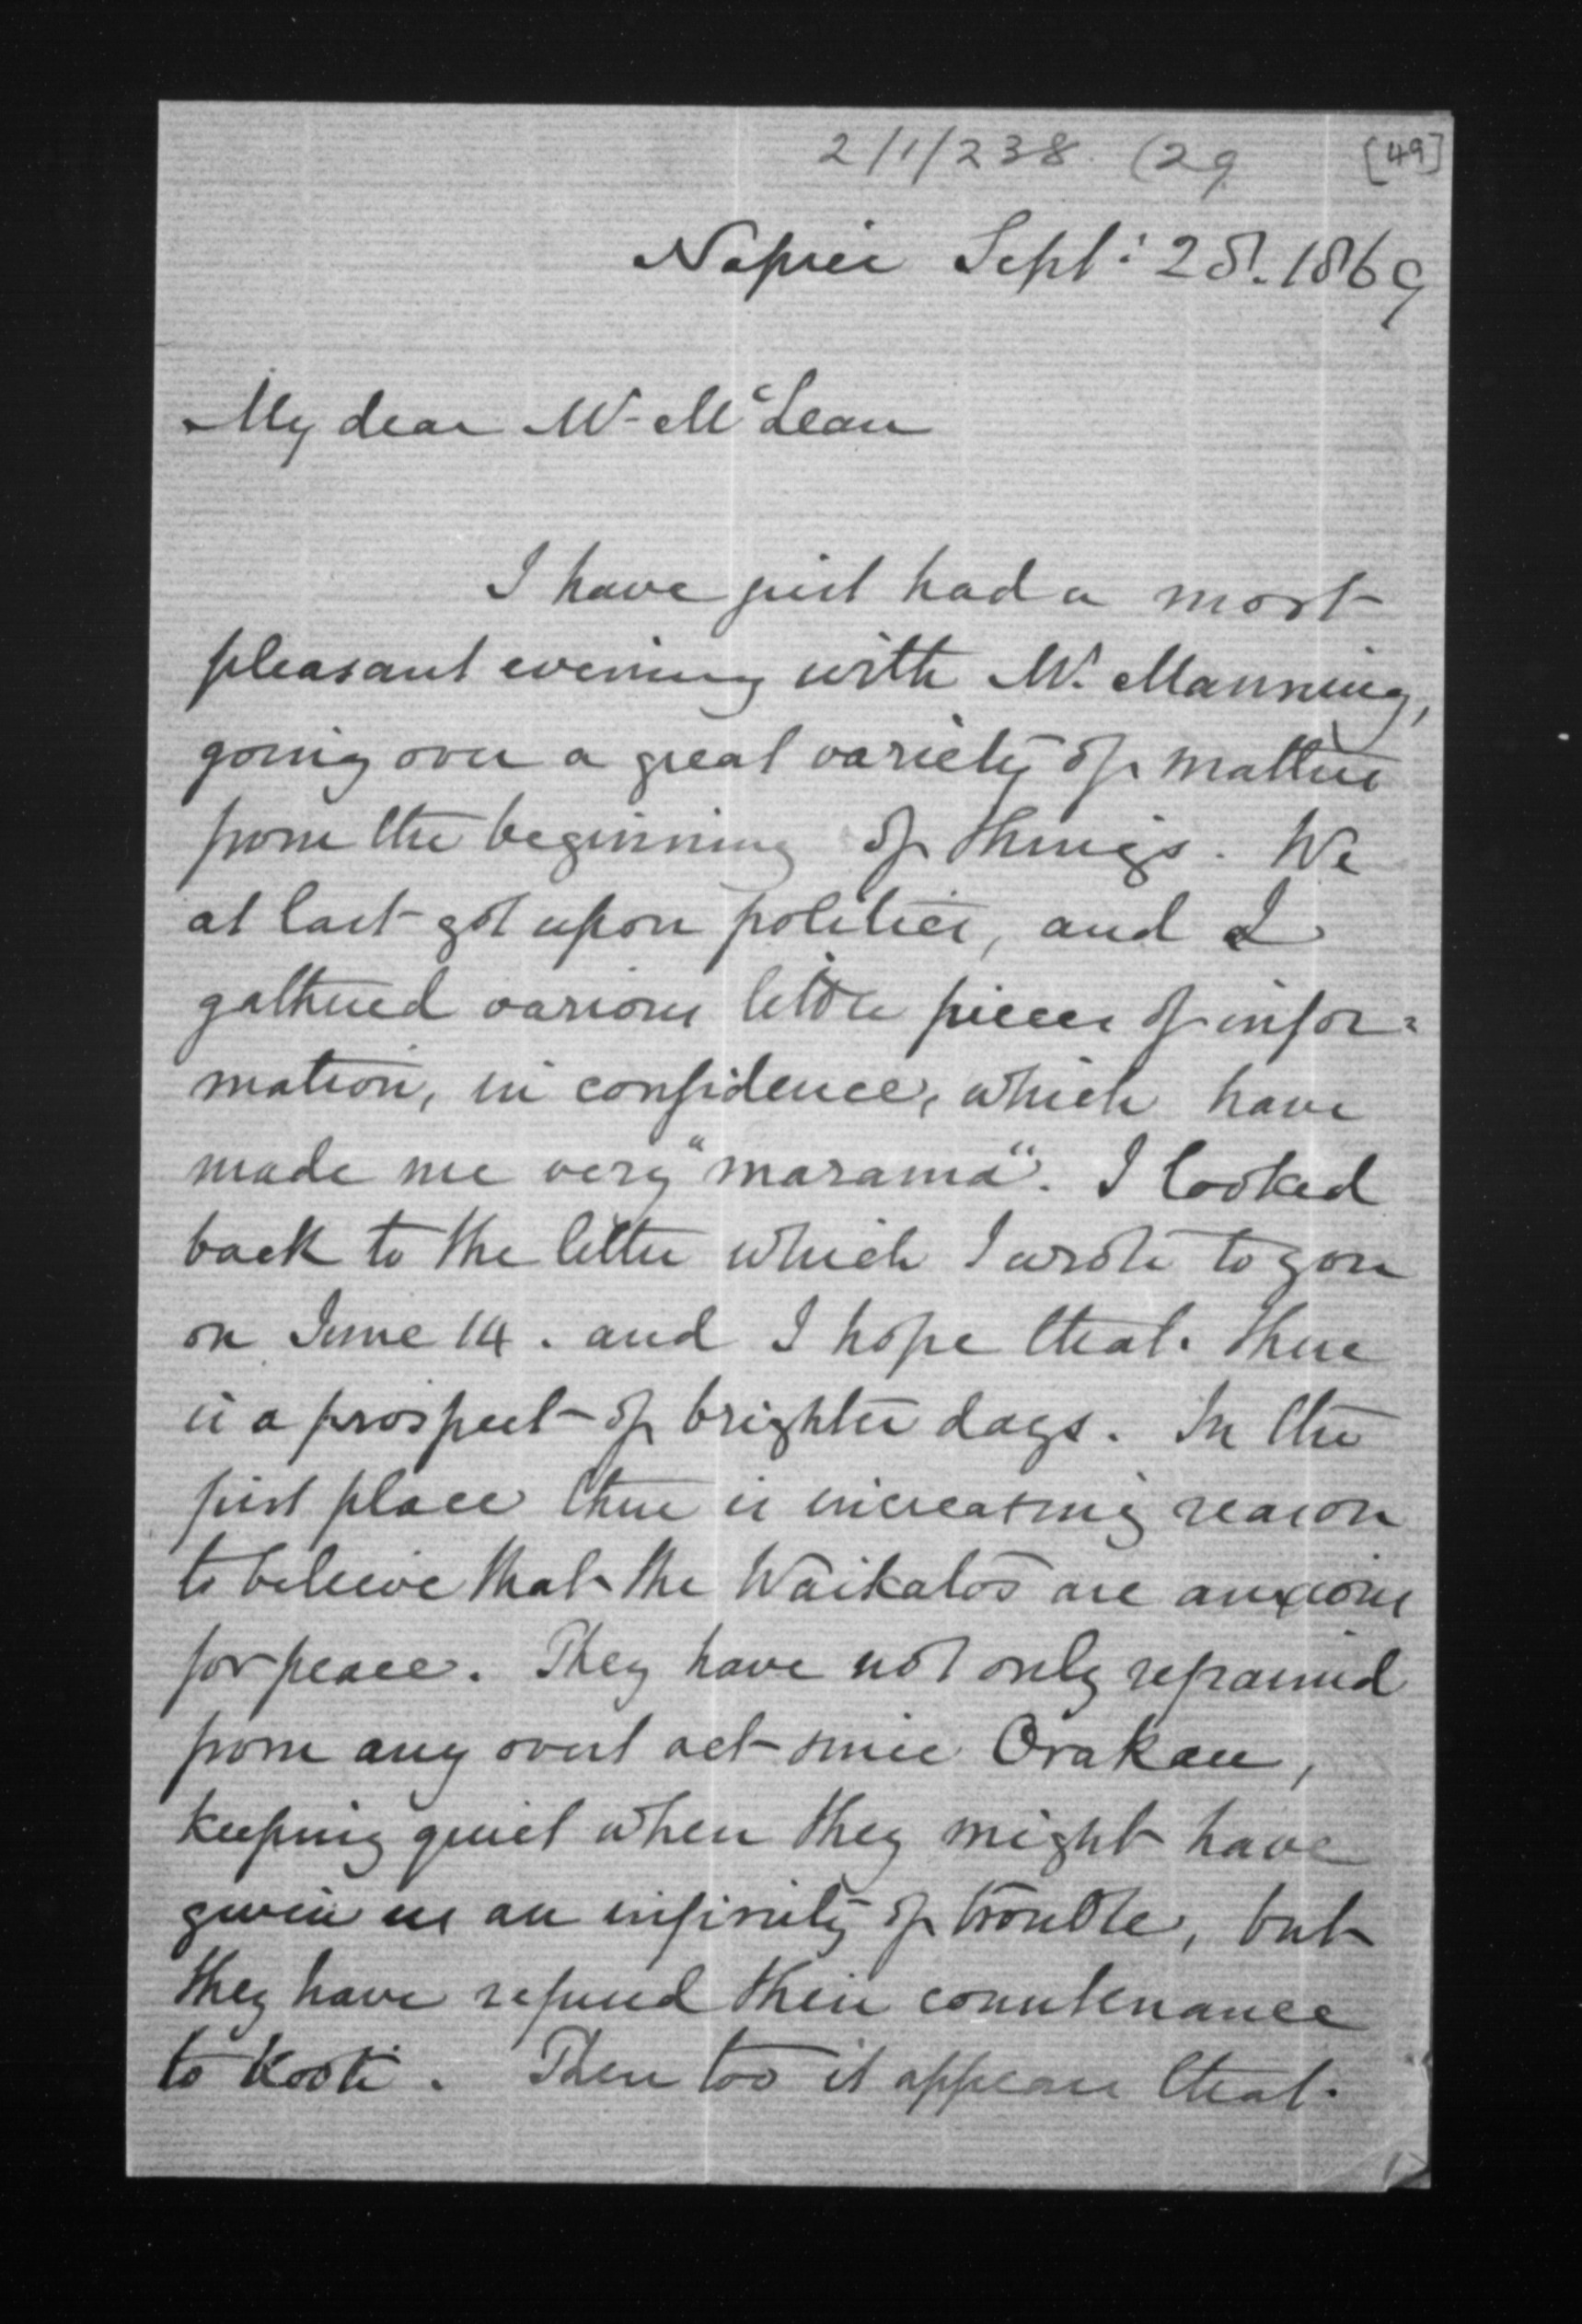 2/1/238. (29 [49]
Napier Sept: 28. 1869
My dear Mr McLean
I have just had a most
pleasant evening with Mr. Manning,
going over a great variety of matters
from the beginning of things. We
at last got upon politics, and I
gathered various little pieces of infor=
mation, in confidence, which have
made me very "marama". I looked
back to the letter which I wrote to you
on June 14. and I hope that there
is a prospect of brighter days. In the
first place there is increasing reason
to believe that the Waikatos are anxious
for peace. They have not only refrained
from any overt act since Orakau,
keeping quiet when they might have
given us an infinity of trouble, but
they have refused their countenance
to Kooti. Then too it appears that